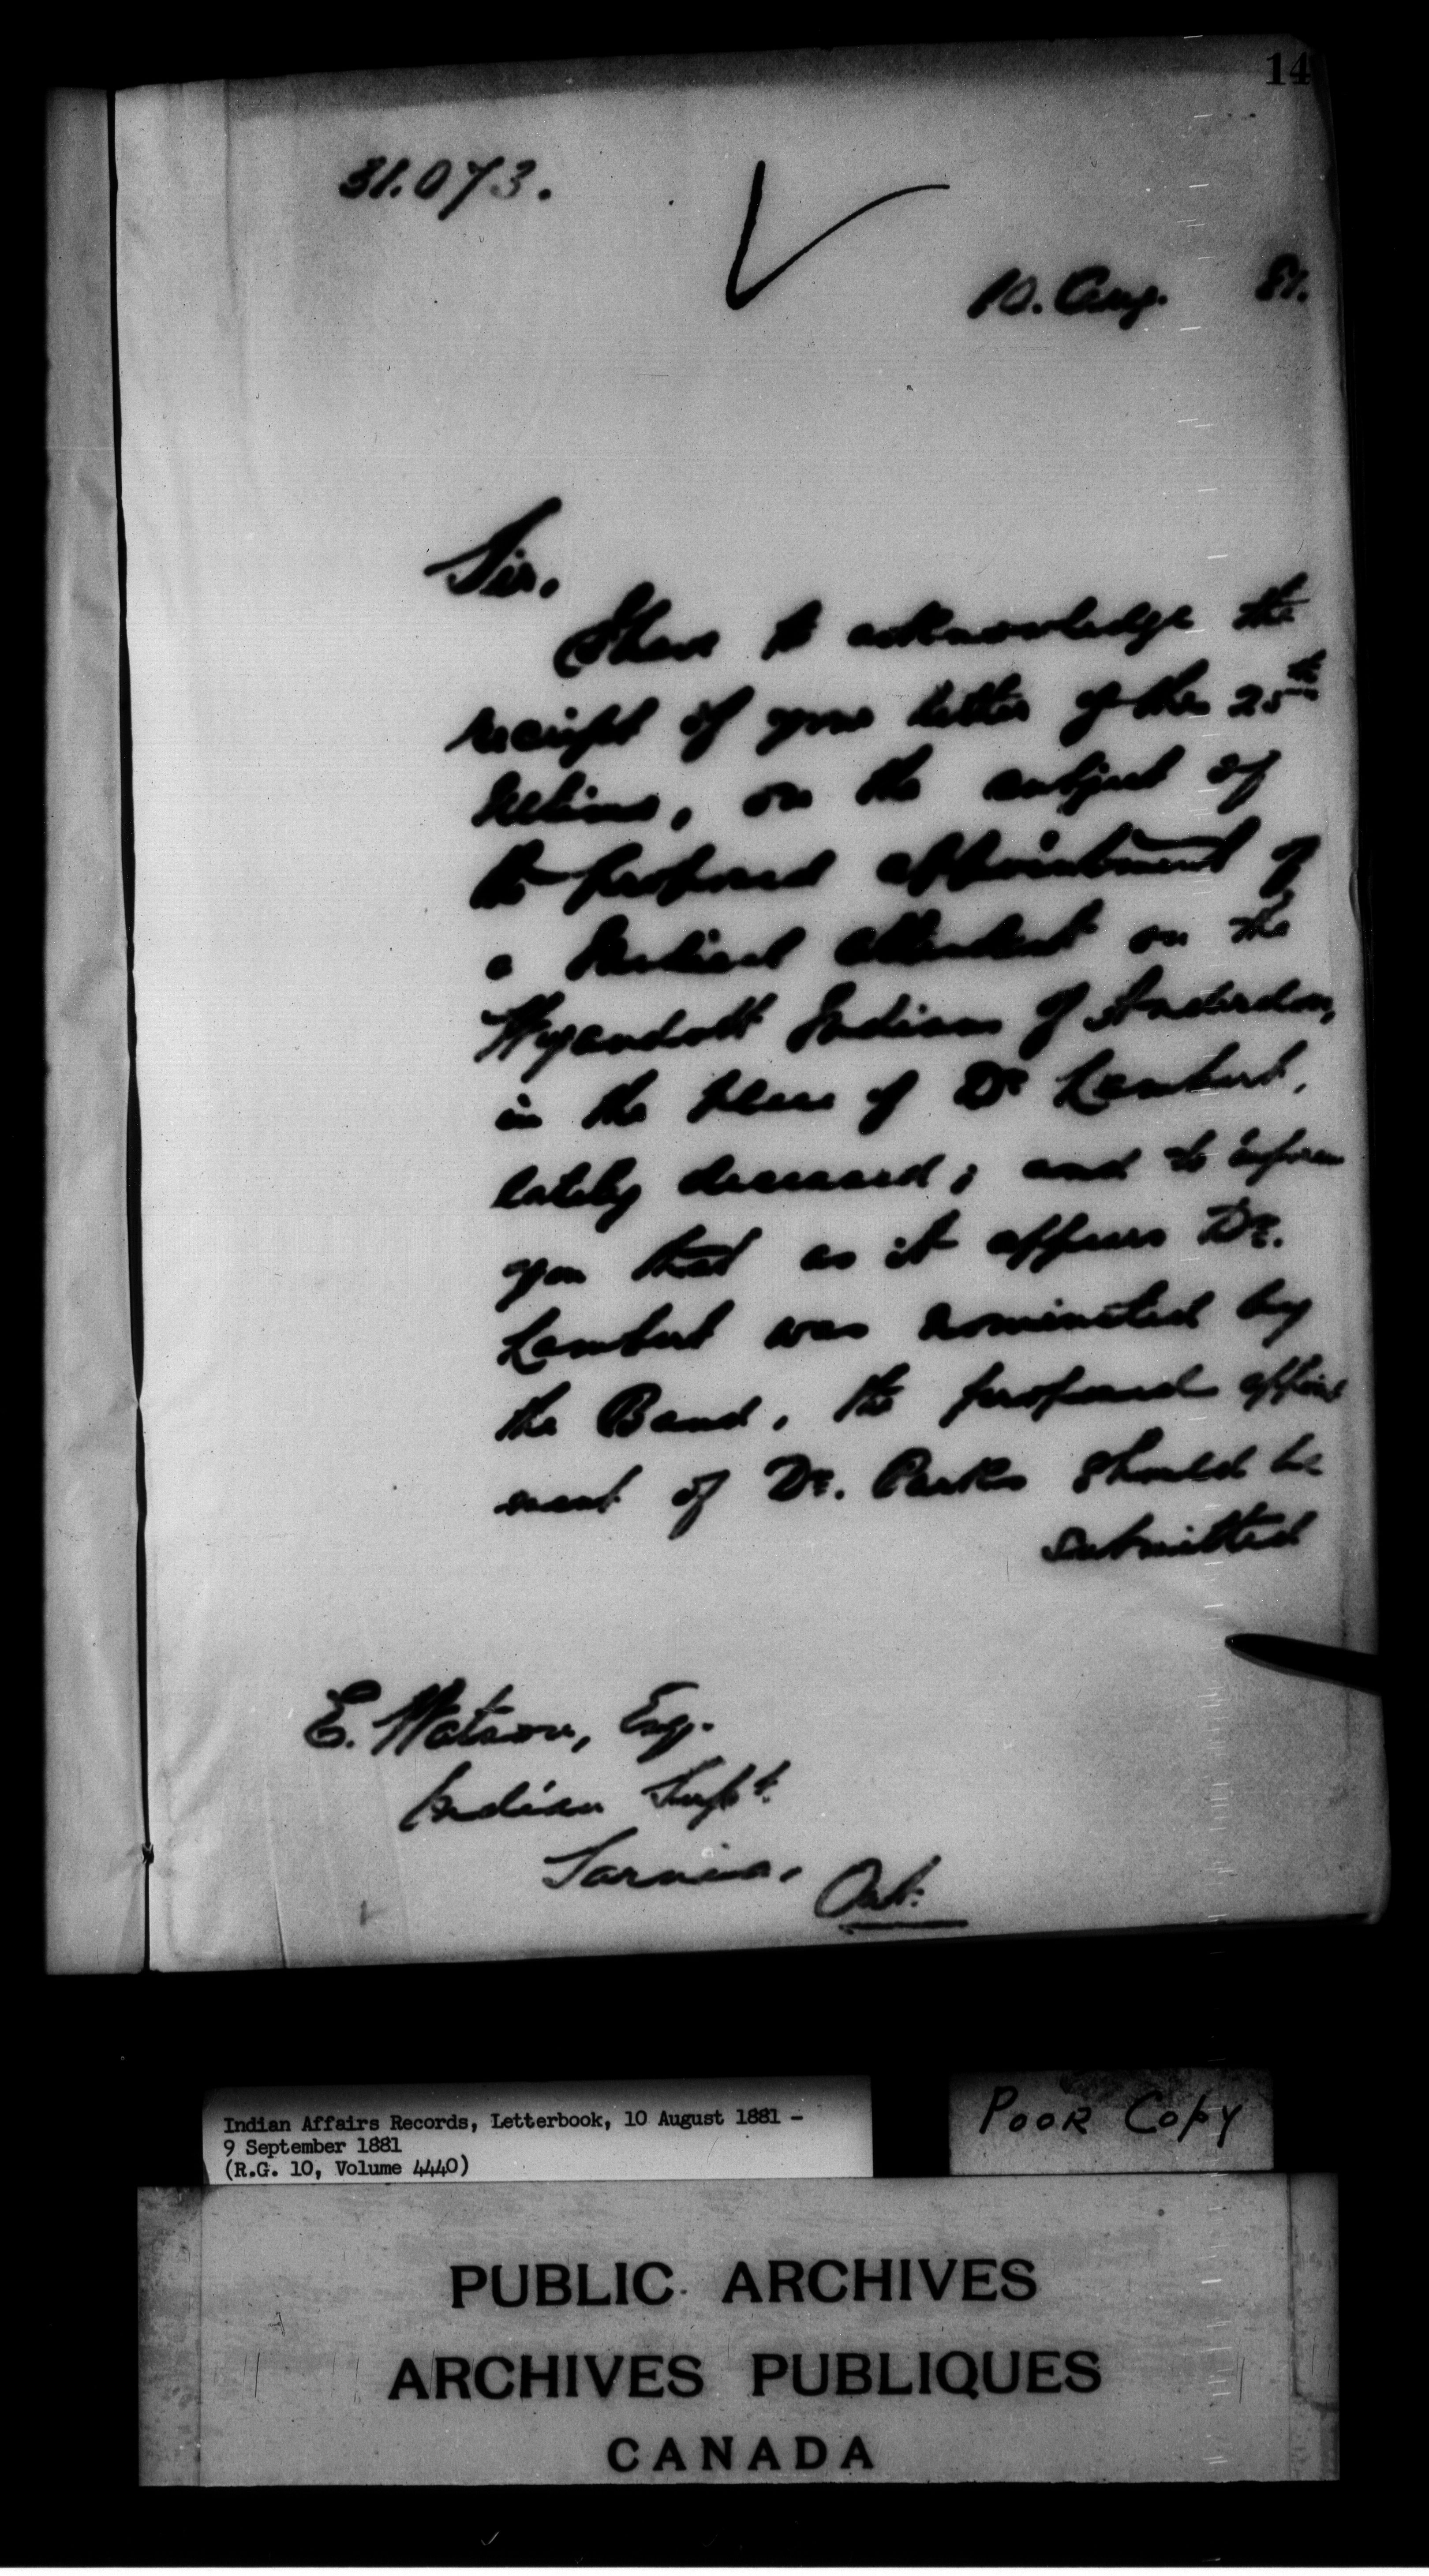 14
31.073.
10. Aug. 81.
Sir,
I have to acknowledge the
receipt of your letter of the 25th
Ultimo, on the subject of
the proposed appointment of
a Medical Attendant on the
Wyandott Indians of Anderdon,
in the place of Dr Lambert,
lately deceased; and to inform
you that as it appears Dr.
Lambert was nominated by
the Band, the proposed appoint
ment of Dr. Parks should be
submitted
E. Watson, Esq.
Indian Supt.
Sarnia, Ont.
Indian Affairs Records, Letterbook, 10 August 1881 -
9 September 1881
(R.G. 10, Volume 4440)
POOR COPY
PUBLIC ARCHIVES
ARCHIVES PUBLIQUES
CANADA